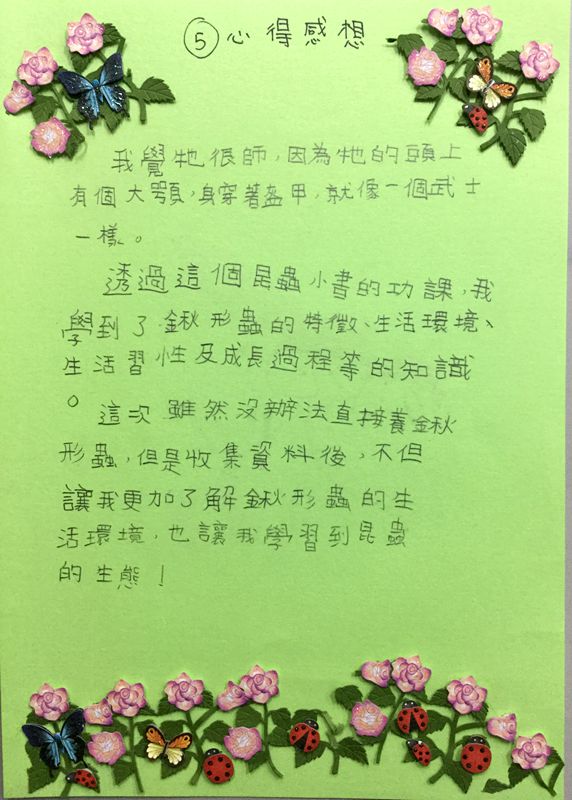 ⑤心得感想
我覺牠很師，因為牠的頭上
有個大顎，身穿著盔甲，就像一個武士
一樣。
透過這個昆蟲小書的功課，我
學到了鍬形蟲的特徵、生活環境、
生活習性及成長過程等的知識
。這次雖然沒辦法直接養鍬
形蟲，但是收集資料後，不但
讓我更加了解鍬形蟲的生
活環境，也讓我學習到昆蟲
的生態！